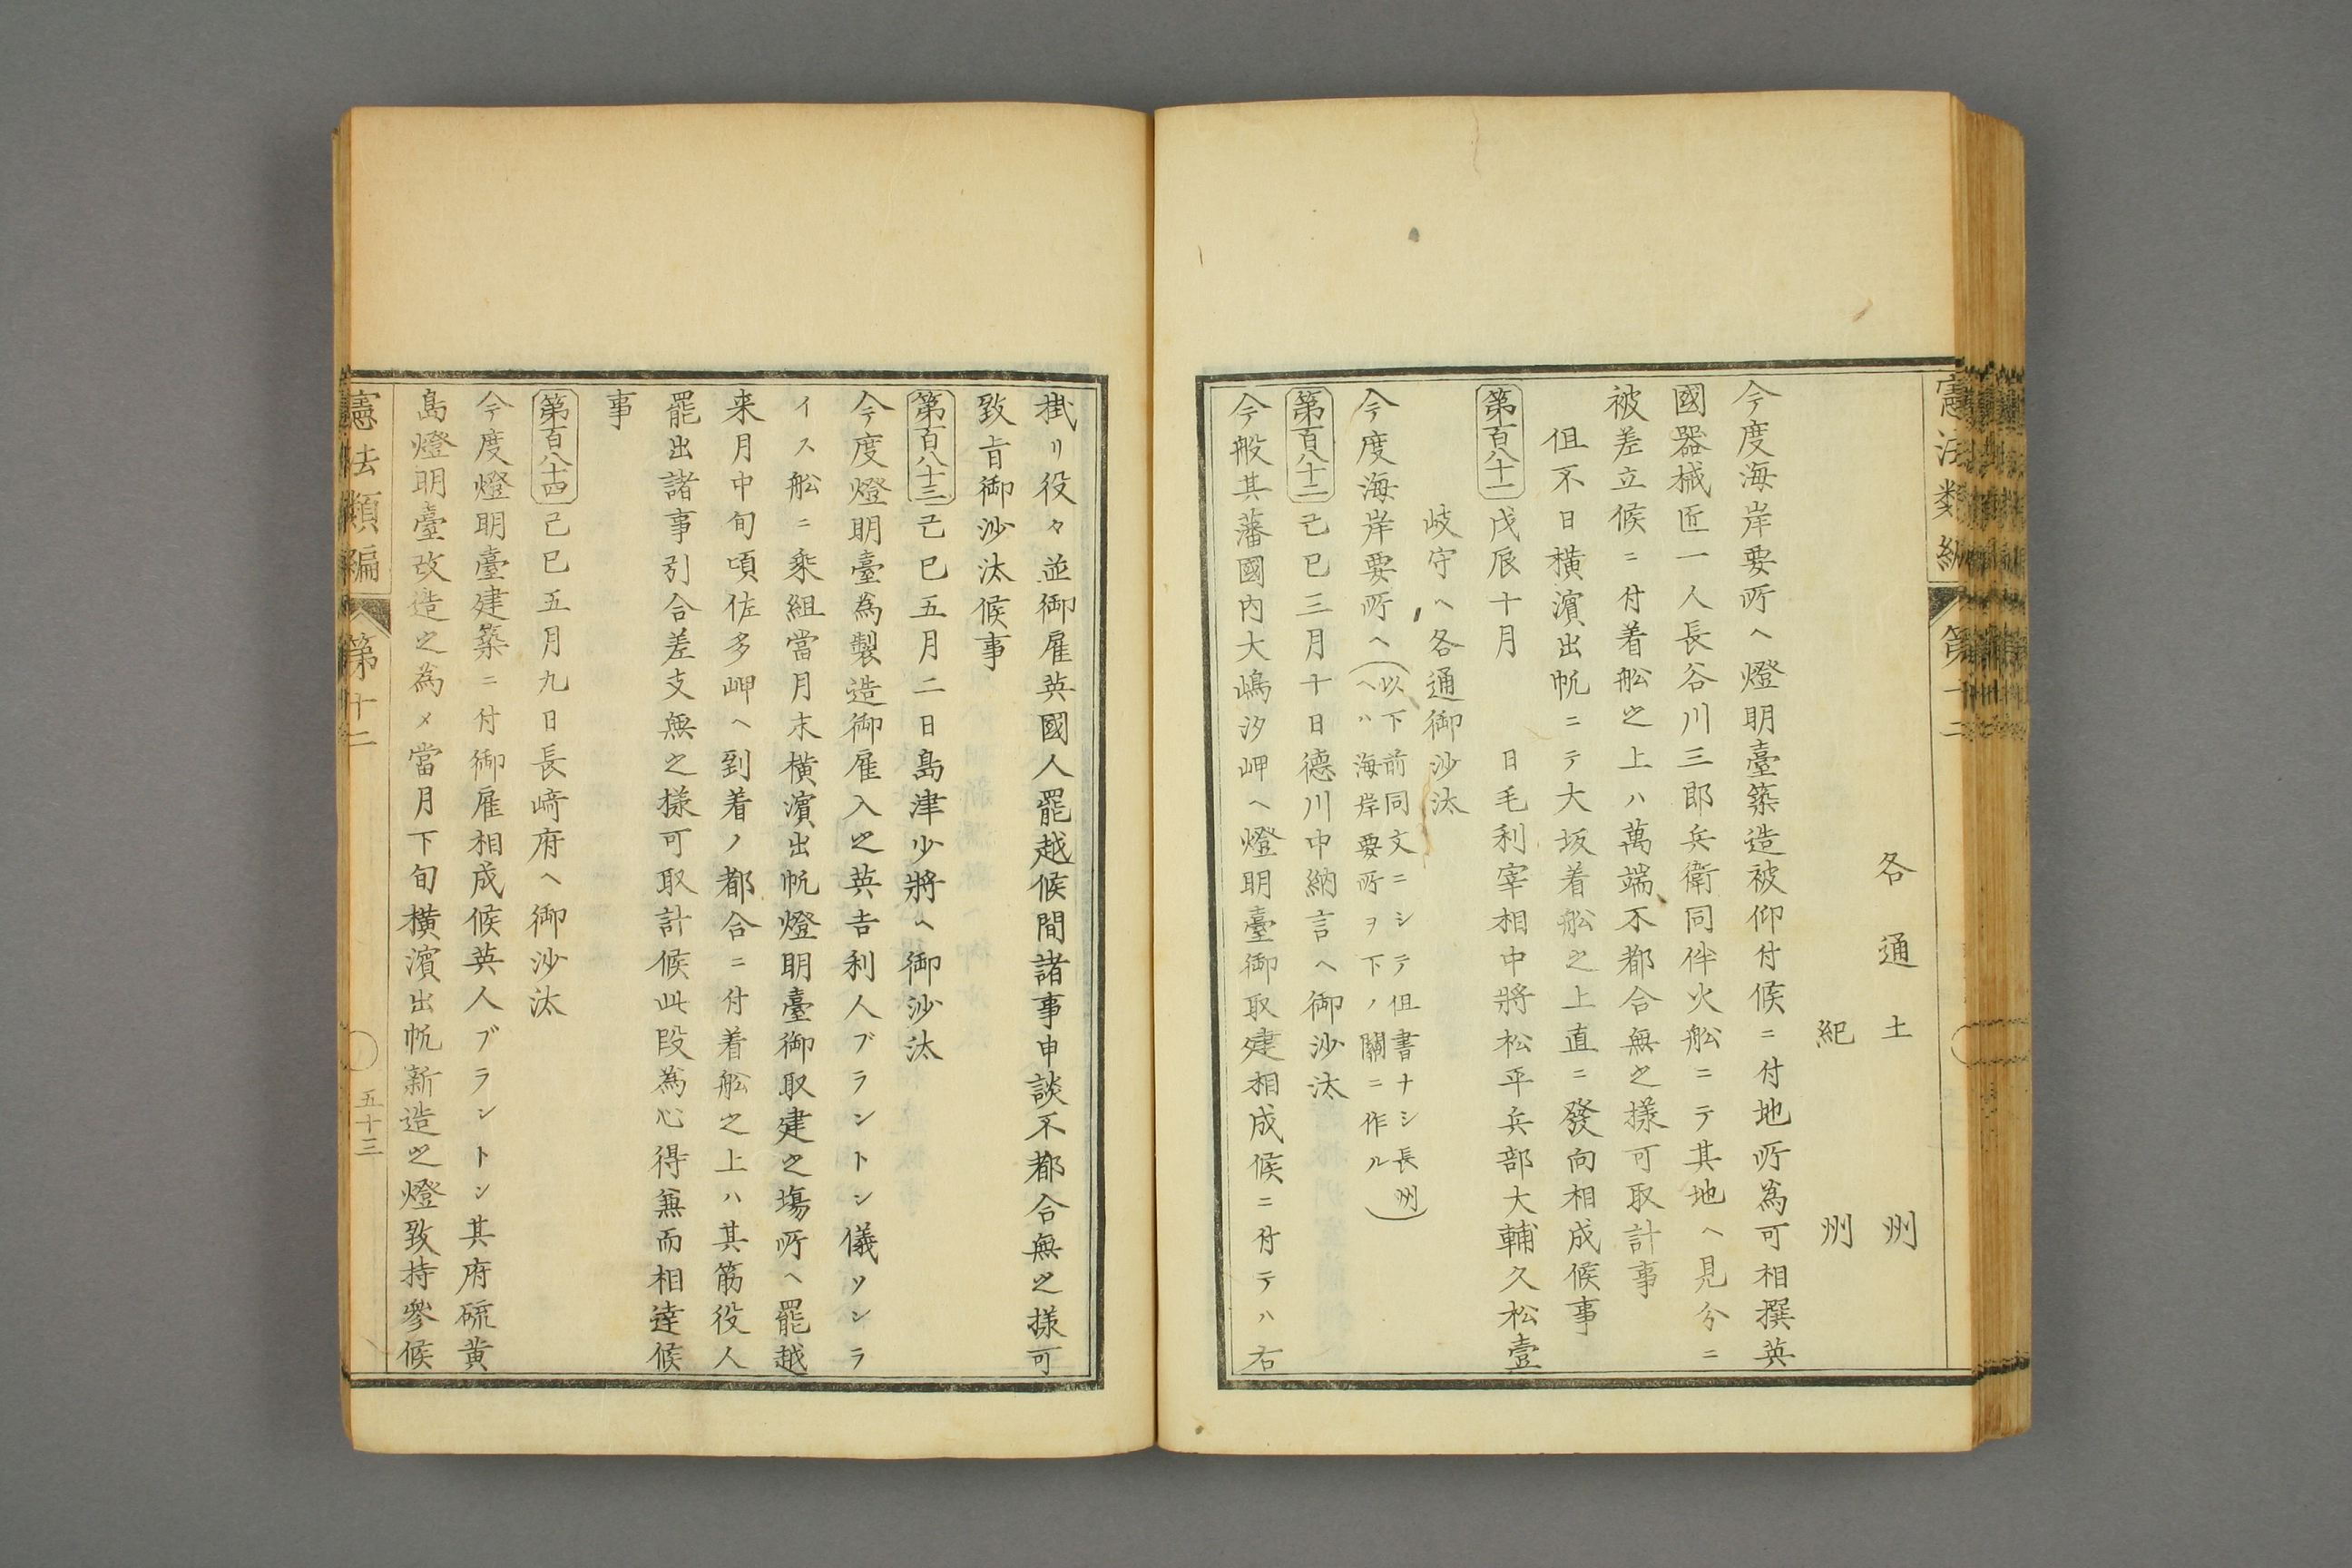 憲法類編 第十二
各通土州
紀州
今度海岸要所ヘ燈明臺築造被仰付候ニ付地所為可相撰英
國器械匠一人長谷川三郎兵衛同伴火舩ニテ其地ヘ見分ニ
被差立候ニ付着舩之上ハ萬端不都合無之様可取計事
但不日横濱出帆ニテ大坂着舩之上直ニ發向相成候事
第百八十一 戊辰十月 日毛利宰相中將松平兵部大輔久松壹
岐守ヘ各通御沙汰
今度海岸要所ヘ(以下前同文ニシテ但書ナシ長州
ヘハ海岸要所ヲ下ノ關ニ作ル)
第百八十二 己巳三月十日德川中納言ヘ御沙汰
今般其藩國内大嶋汐岬ヘ燈明臺御取建相成候ニ付テハ右
掛リ役々並御雇英國人罷越候間諸事申談不都合無之様可
致旨御沙汰候事
第百八十三 己巳五月二日島津少將ヘ御沙汰
今度燈明臺為製造御雇入之英吉利人ブラントン儀ソンラ
イス舩ニ乘組當月末横濱出帆燈明臺御取建之塲所ヘ罷越
来月中旬頃佐多岬ヘ到着ノ都合ニ付着舩之上ハ其筋役人
罷出諸事引合差支無之様可取計候此段為心得兼而相達候
事
第百八十四 己巳五月九日長﨑府ヘ御沙汰
今度燈明臺建築ニ付御雇相成候英人ブラントン其府硫黄
島燈明臺改造之為メ當月下旬横濱出帆新造之燈致持參候
憲法類編 第十二 五十三